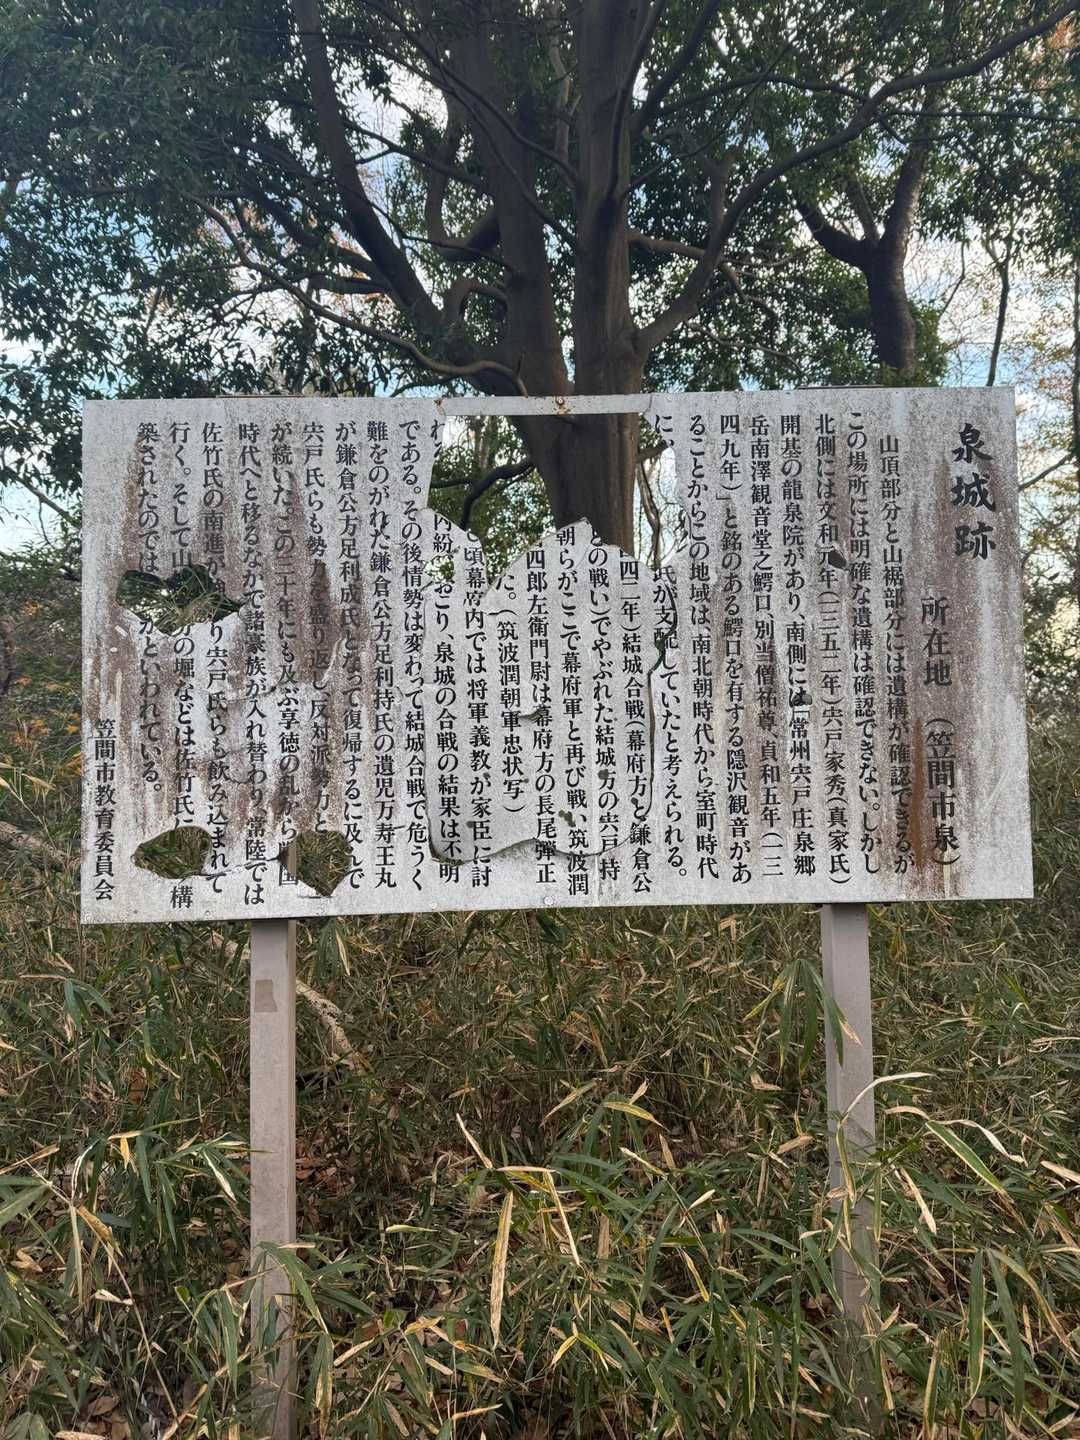 泉城跡
所在地 (笠間市泉)
山頂部分と山裾部分には遺構が確認できるが
この場所には明確な遺構は確認できない。しかし
北側には文和元年(一三五二年)宍戸家秀(真家氏)
開基の龍泉院があり、南側には「常州宍戸庄泉郷
岳南澤観音堂之鰐口、別当僧祐尊、貞和五年(一三
四九年)」と銘のある鰐口を有する隠沢観音があ
ることからこの地域は、南北朝時代から室町時代
に 氏が支配していたと考えられる。
四二年)結城合戦(幕府方と鎌倉公
との戦い)でやぶれた結城方の宍戸持
朝らがここで幕府軍と再び戦い筑波潤
四郎左衛門尉は幕府方の長尾弾正
た。(筑波潤朝軍忠状写)
頃幕府内では将軍義教が家臣に討
れ 内紛がおこり、泉城の合戦の結果は不明
である。その後情勢は変わって結城合戦で危うく
難をのがれた鎌倉公方足利持氏の遺児万寿王丸
が鎌倉公方足利成氏となって復帰するに及んで
宍戸氏らも勢力を盛り返し、反対派勢力と
が続いた。この三十年にも及ぶ享徳の乱から戦国
時代へと移るなかで諸豪族が入れ替わり、常陸では
佐竹氏の南進が り宍戸氏らも飲み込まれて
行く。そして山 分の堀などは佐竹氏に 構
築されたのでは かといわれている。
笠間市教育委員会